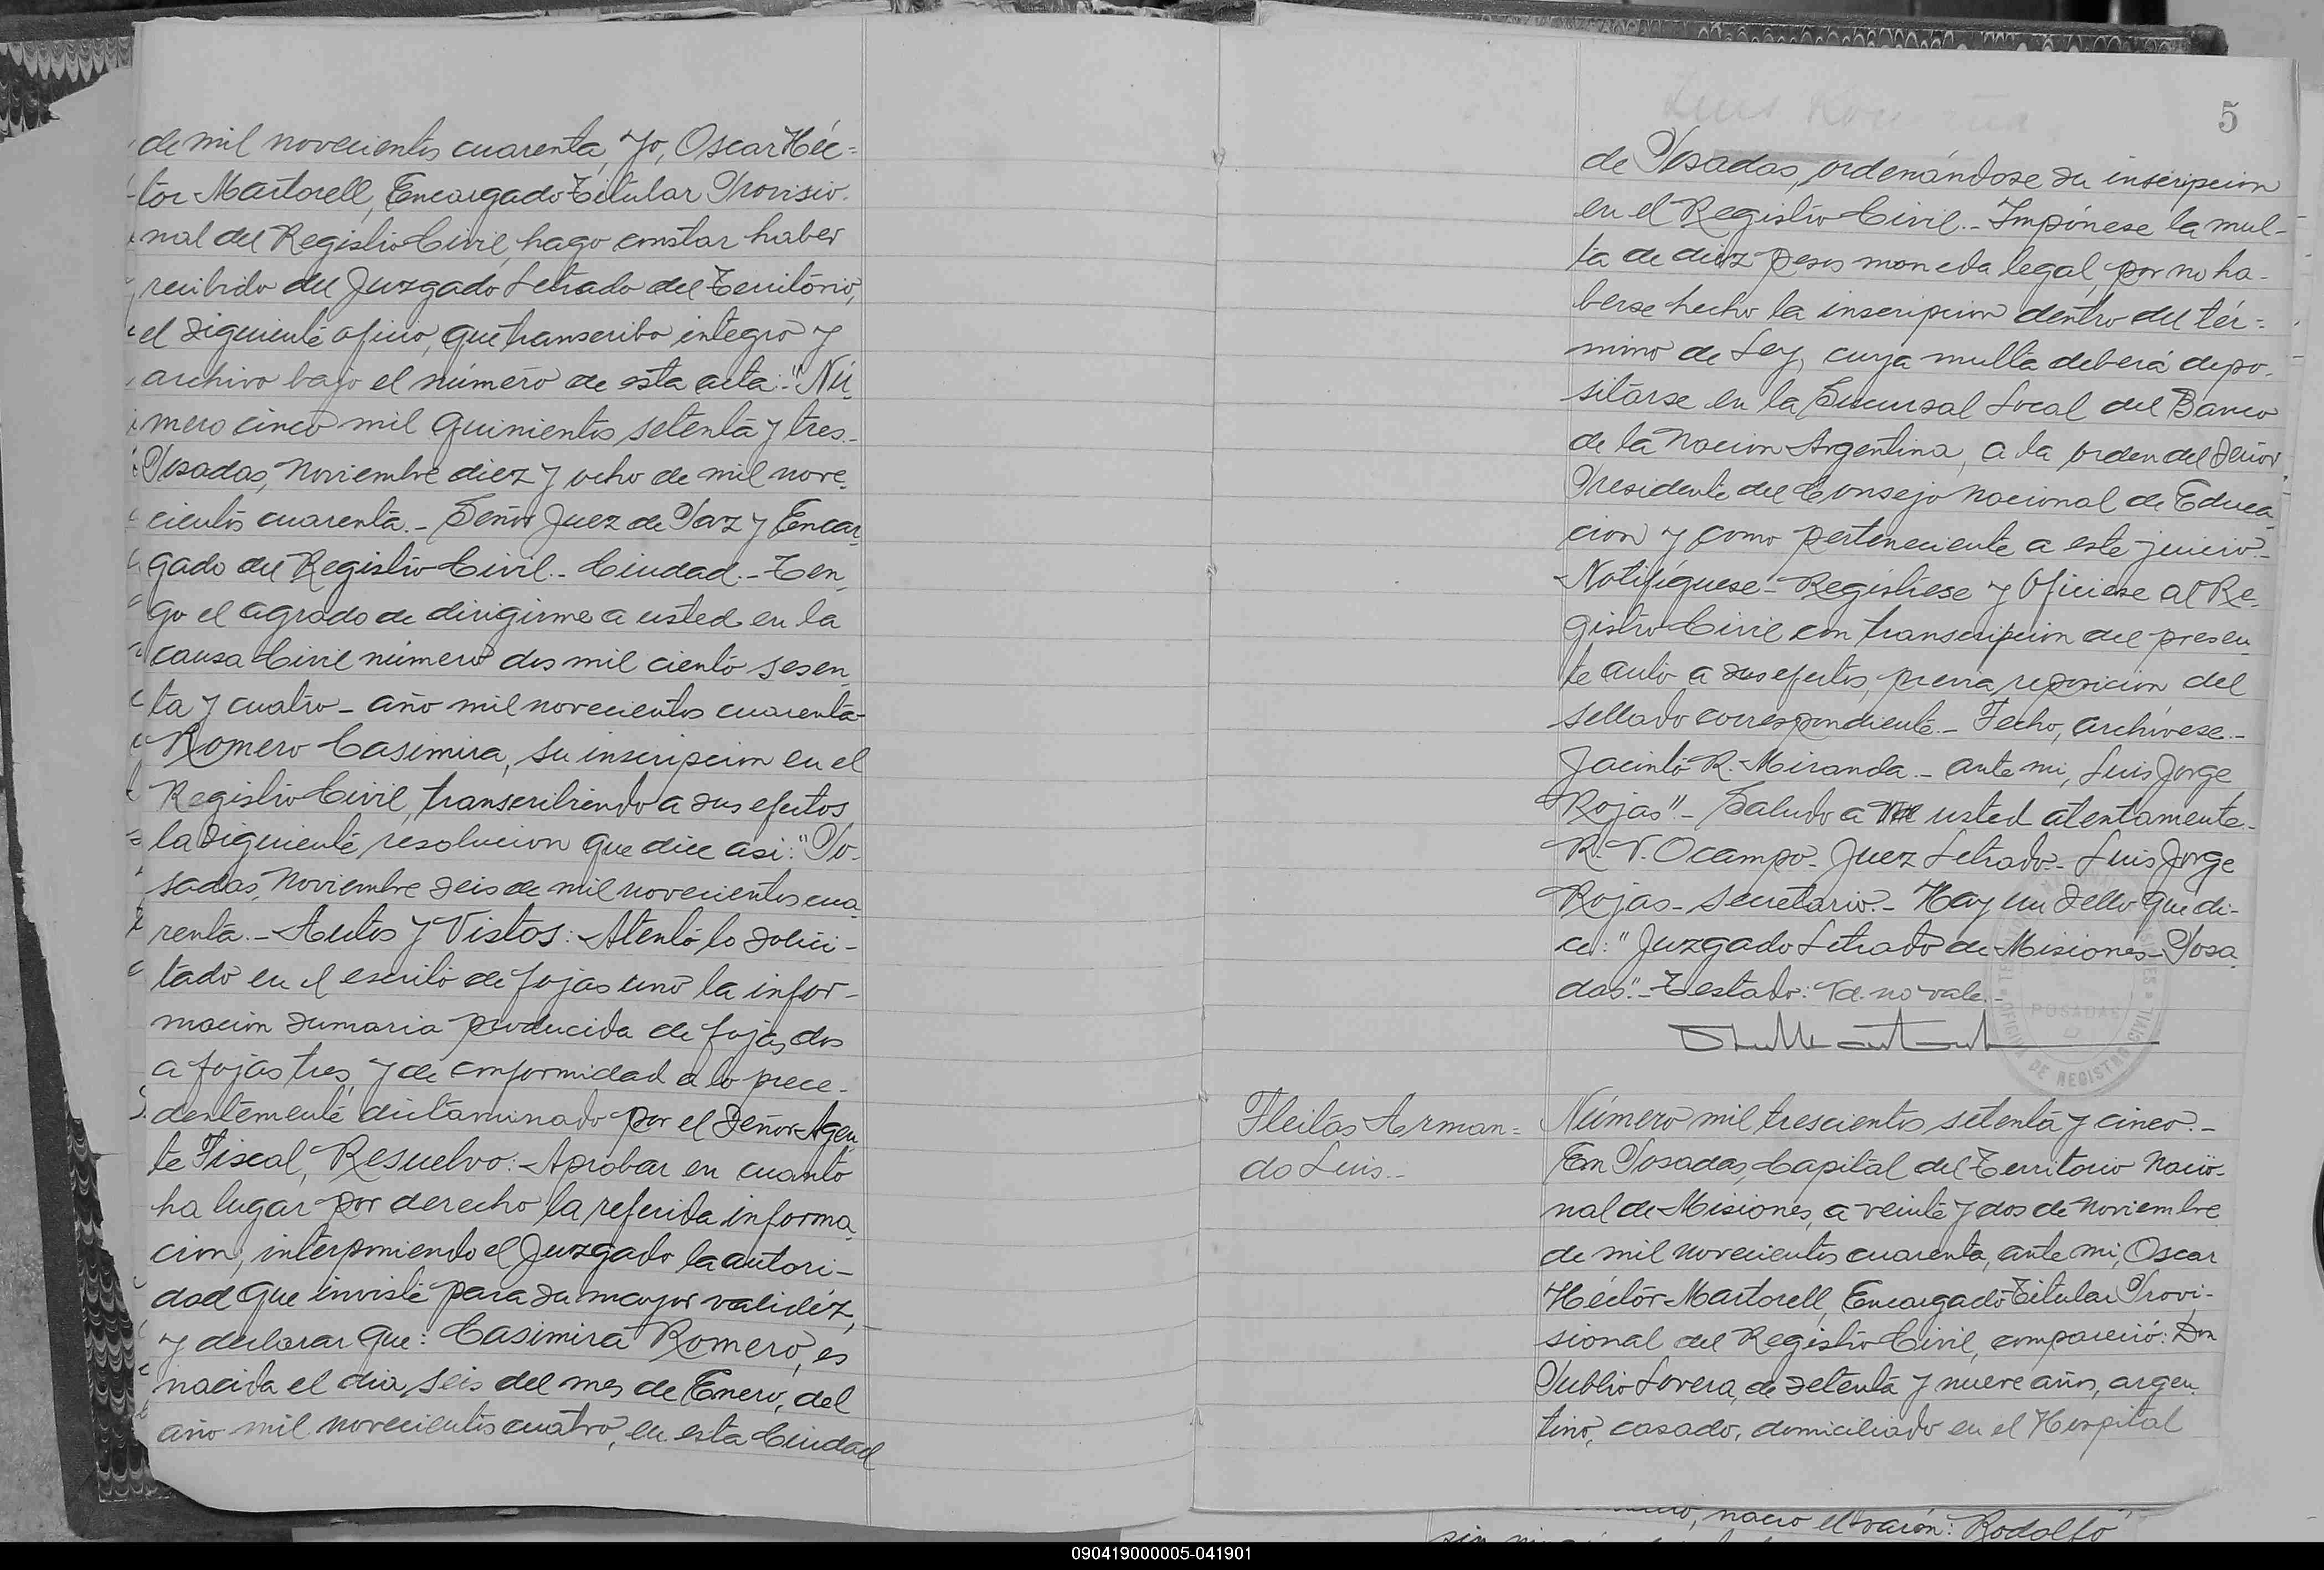 de mil novecientos cuarenta, Yo, Oscar Héc=
tor Martorell, Encargado Titular Provisio-
nal del Registro Civil, hago constar haber
recibido del Juzgado Letrado del Territorio,
el siguiente oficio, que transcribo integro y
archivo bajo el número de esta acta:-"Nú-
mero cinco mil quinientos setenta y tres.-
Posadas, Noviembre diez y ocho de mil nove-
cientos cuarenta.- Señor Juez de Paz y Encar-
gado del Registro Civil.- Ciudad.- Ten-
go el agrado de dirigirme a usted en la
causa Civil número dos mil ciento sesen-
ta y cuatro - año mil novecientos cuarenta-
Romero Casimira, su inscripcion en el
Registro Civil, transcribiendo a sus efectos
la siguiente resolucion que dice asi: "Po-
sadas, Noviembre seis de mil novecientos cua-
renta.- Autos y Vistos: Atento lo solici-
tado en el escrito de fojas uno la infor-
macion sumaria producida de fojas dos
a fojas tres, y de conformidad a lo prece-
dentemente dictaminado por el Señor Agen-
te Fiscal, Resuelvo: Aprobar en cuanto
ha lugar por derecho la referida informa-
cion, interponiendo el Juzgado la autori-
dad que inviste para su mayor validéz,
y declarar que: Casimira Romero, es
nacida el dia seis del mes de Enero, del
año mil novecientos cuatro, en esta Ciudad
5
de Posadas, ordenándose su inscripcion
en el Registro Civil.- Impónese la mul-
ta de diez pesos moneda legal, por no ha-
berse hecho la inscripcion dentro del tér=
mino de Ley, cuya multa deberá depo-
sitarse en la Sucursal Local del Banco
de la Nacion Argentina, a la orden del Señor
Presidente del Consejo Nacional de Educa-
cion y como perteneciente a este juicio.-
Notifíquese - Regístrese y Ofíciese al Re-
gistro Civil con transcripcion del presen-
te auto a sus efectos, previa reposicion del
sellado correspondiente.- Fecho, archívese.-
Jacinto R. Miranda.- ante mi, Luis Jorge
Rojas".- Saludo a usted atentamente.-
R. V. Ocampo- Juez Letrado.- Luis Jorge
Rojas- Secretario.- Hay un sello que di-
ce: "Juzgado Letrado de Misiones- Posa-
das".- Testado: Vd. no vale.-
POSADAS
OFICINA DE REGISTRO CIVIL
Fleitas Arman=
do Luis.-
Número mil trescientos setenta y cinco.-
En Posadas, Capital del Territorio Nacio-
nal de Misiones, a veinte y dos de Noviembre
de mil novecientos cuarenta, ante mi, Oscar
Héctor Martorell, Encargado Titular Provi-
sional del Registro Civil, compareció: Don
Publio Lovera, de setenta y nueve años, argen-
tino, casado, domiciliado en el Hospital
nacio el varon: Rodolfo
090419000005-041901